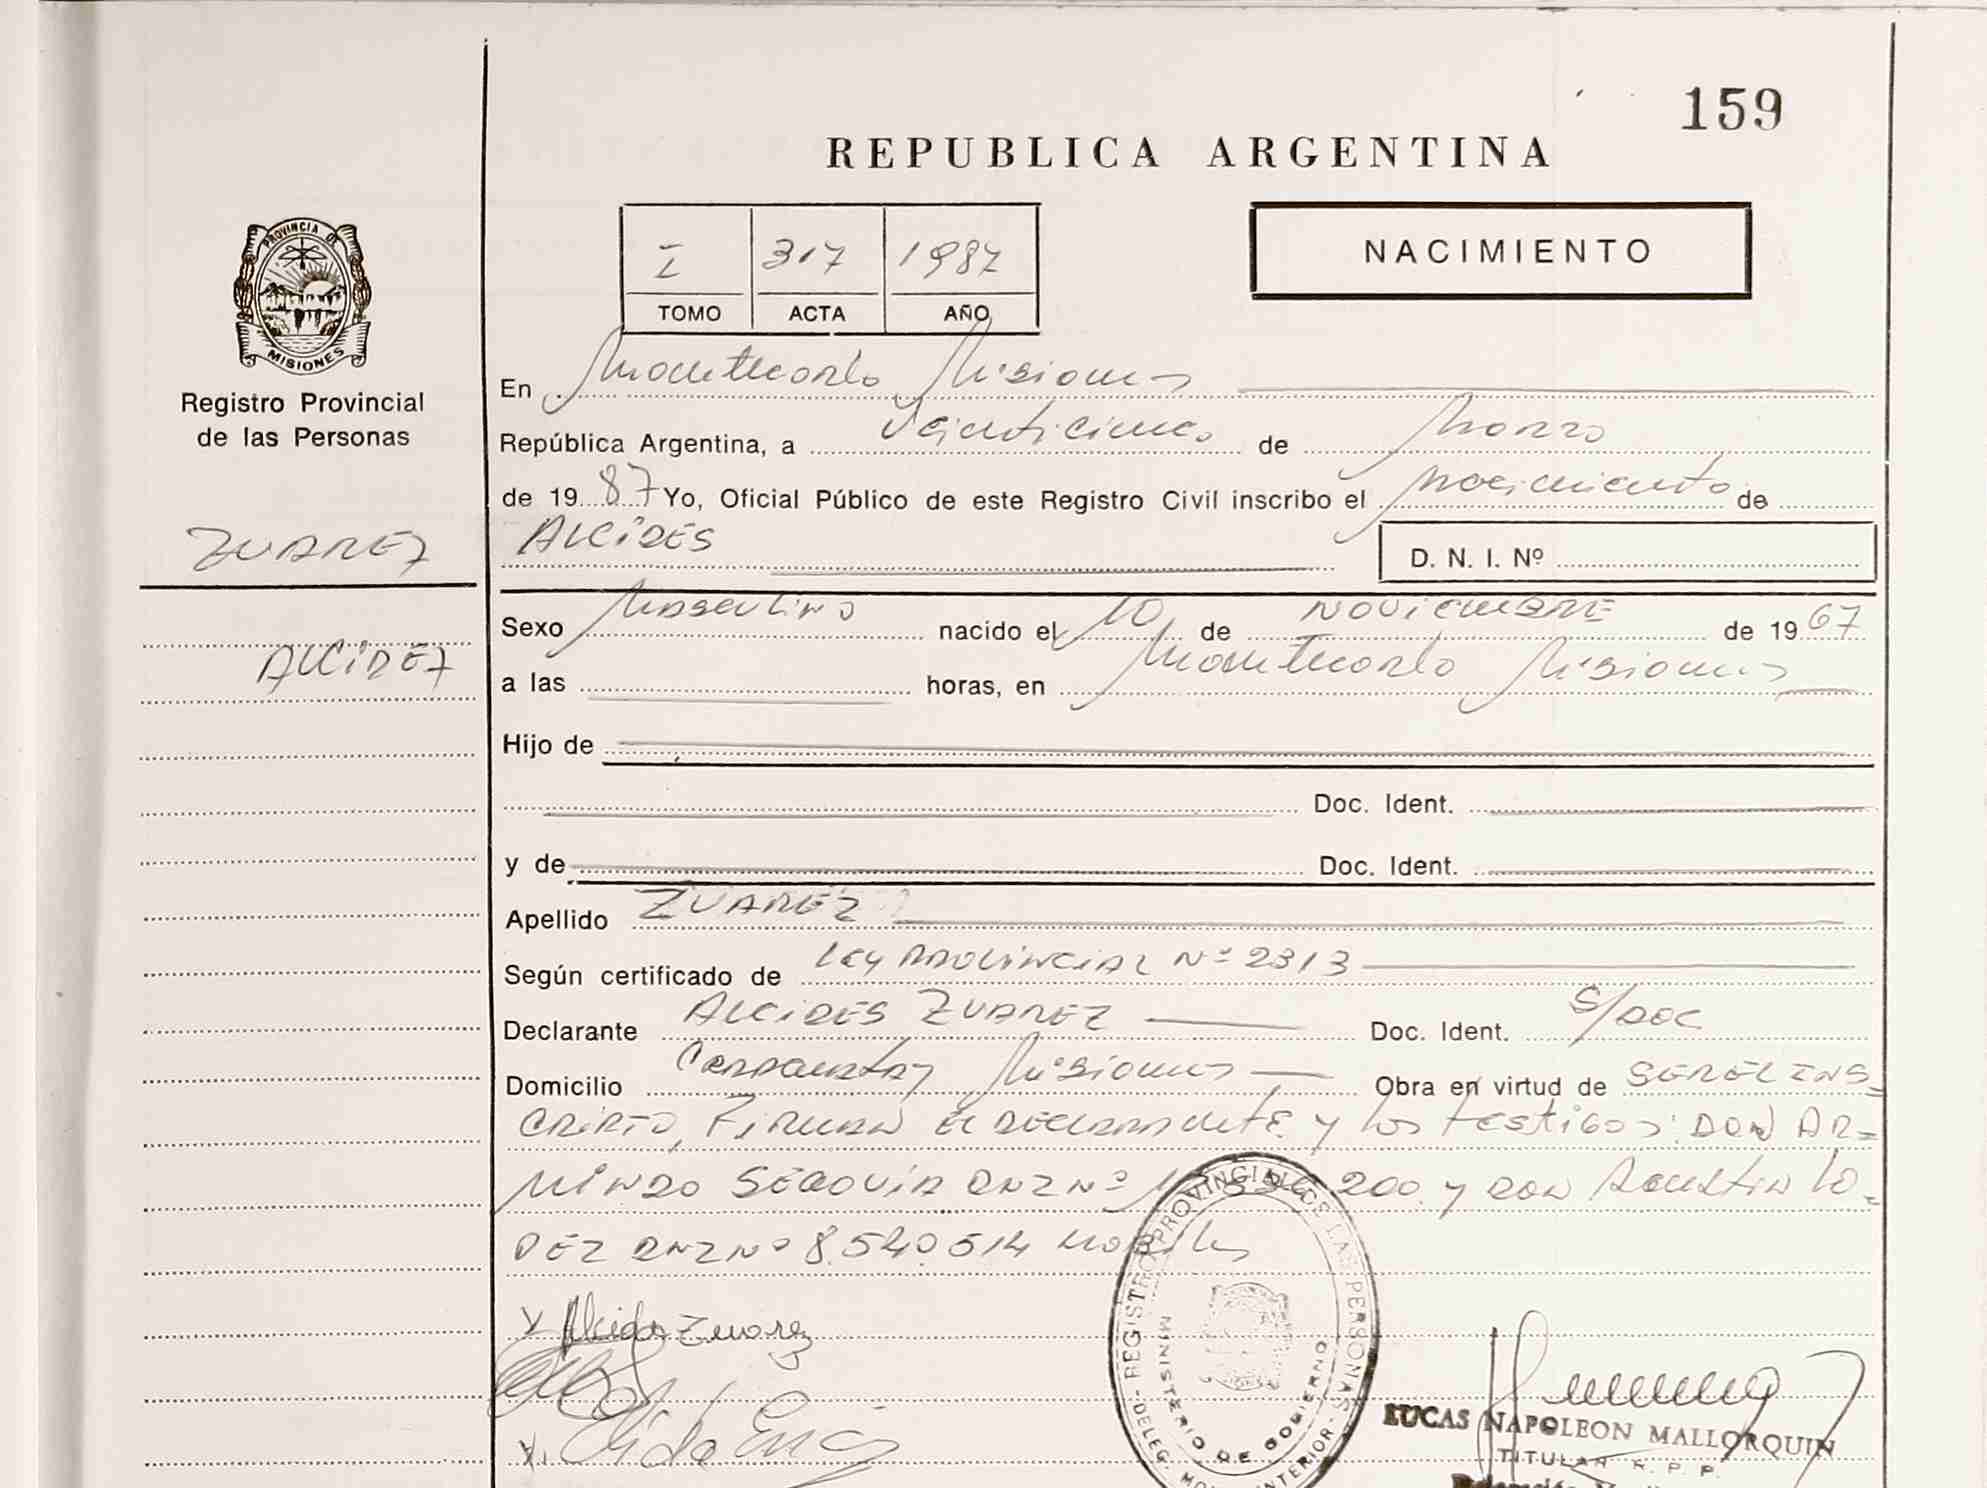 159
REPUBLICA ARGENTINA
I 317 1987
TOMO ACTA AÑO
NACIMIENTO
PROVINCIA DE
MISIONES
Registro Provincial
de las Personas
ZUAREZ
ALCIDEZ
En Montecarlo Misiones
República Argentina, a Veinticinco de Marzo
de 1987 Yo, Oficial Público de este Registro Civil inscribo el nacimiento de
ALCIDES
D. N. I. Nº
Sexo Masculino nacido el 10 de NOVIEMBRE de 1967
a las horas, en Montecarlo Misiones
Hijo de
Doc. Ident.
y de Doc. Ident.
Apellido ZUAREZ
Según certificado de Ley PROVINCIAL Nº 2313
Declarante ALCIDES ZUAREZ Doc. Ident. S/DOC
Domicilio Misiones Obra en virtud de SER EL INS=
CRIPTO, FIRMAN el DECLARANTE y los testigos: DON AR=
MINDO SEQUEIRA DNI Nº 200 y DON Agustin LO=
PEZ DNI Nº 8.540.514 hábiles
Alcides Zuarez
REGISTRO PROVINCIAL DE LAS PERSONAS
MINISTERIO DE GOBIERNO
DELEG. INTERIOR
LUCAS NAPOLEON MALLORQUIN
TITULAR R. P. P.